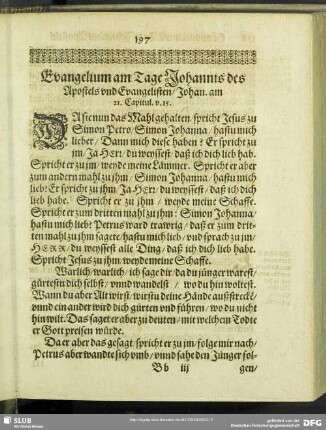 197
Evangelium am Tage Johannis des
Apostels vnd Evangelisten / Johan. am
21. Capitul. v. 15.
DA sie nun das Mahl gehalten / spricht Jesus zu
Simon Petro / Simon Johanna / hastu mich
lieber / Dann mich diese haben? Er spricht zu
jm / Ja HErr / du weyssest / daß ich dich lieb hab.
Spricht er zu jm / weyde meine Lämmer. Spricht er aber
zum andern mahl zu jhm / Simon Johanna / hastu mich
lieb? Er spricht zu jhm / Ja HErr / du weyssest / daß ich dich
lieb habe. Spricht er zu jhm / weyde meine Schaffe.
Spricht er zum dritten mahl zu jhm: Simon Johanna /
hastu mich lieb? Petrus ward trawrig / daß er zum drit-
ten mahl zu jhm sagte / hastu mich lieb / vnd sprach zu jm /
HERR / du weyssest alle Ding / daß ich dich lieb habe.
Spricht Jesus zu jhm / weyde meine Schaffe.
Warlich / warlich / ich sage dir / da du jünger warest /
gürtestu dich selbst / vnnd wandelst / wo du hin woltest.
Wann du aber Alt wirst / wirstu deine Hände außstreckē /
vnnd ein ander wird dich gürten vnd führen / wo du nicht
hin wilt. Das saget er aber zu deuten / mit welchem Todte
er Gott preisen würde.
Da er aber das gesagt / spricht er zu jm / folge mir nach /
Petrus aber wandte sich vmb / vnnd sahe den Jünger fol-
Bb iij gen /
SLUB
DFG